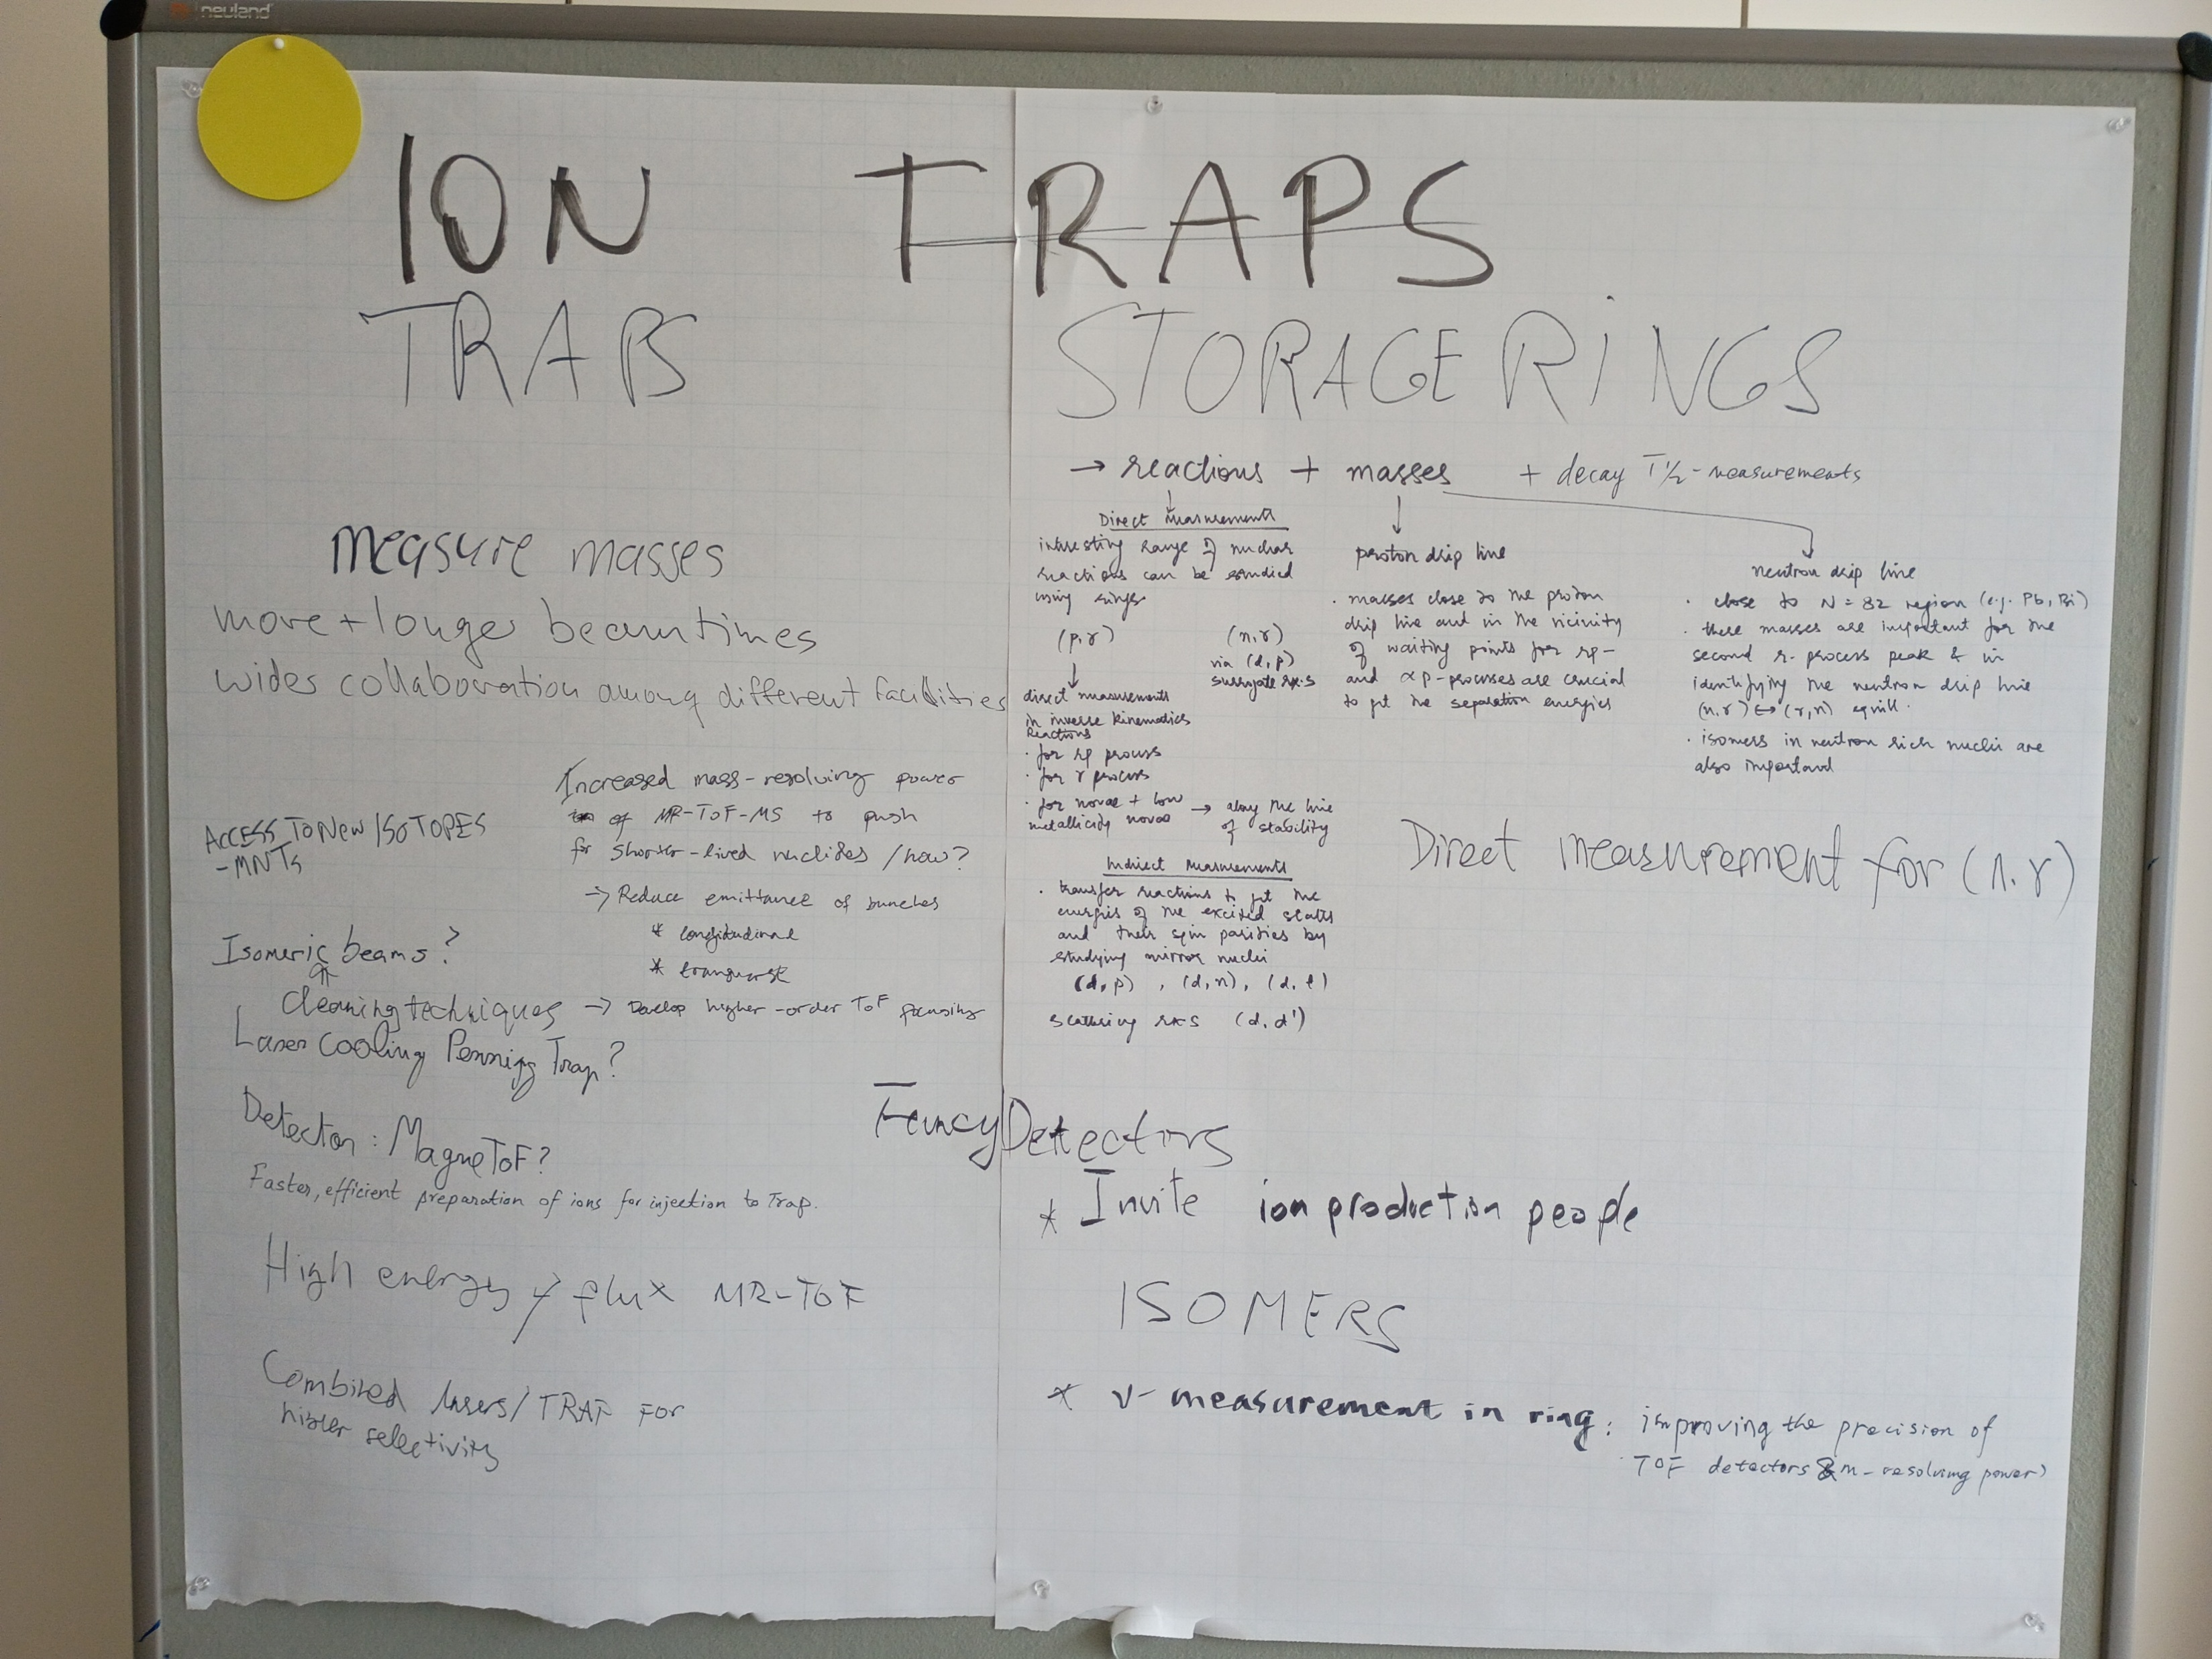 neuland
ION TRAPS
TRAPS
measure masses
more + longer beamtimes
wider collaboration among different facilities
Increased mass-resolving power
of MR-ToF-MS to push
for shorter-lived nuclides / how?
→ Reduce emittance of bunches
* longitudinal
* transverse
→ Develop higher-order ToF focusing
ACCESS TO New ISOTOPES
- MNTs
Isomeric beams?
Cleaning techniques
Laser cooling Penning Trap?
Detector: MagneToF?
Faster, efficient preparation of ions for injection to Trap.
High energy / flux MR-ToF
Combined lasers/TRAP FOR
higher selectivity
STORAGE RiNGS
→ reactions + masses + decay T1/2 - measurements
Direct Measurements
interesting range of nuclear
reactions can be studied
using rings
(p,γ) (n,γ)
via (d,p)
surrogate rxs
direct measurements
in inverse kinematics
Reactions
· for rp process
· for γ process
· for novae + low → along the line
metallicity novae of stability
Indirect Measurements
· transfer reactions to get the
energies of the excited states
and their spin parities by
studying mirror nuclei
(d,p), (d,n), (d,t)
scattering rxs (d,d')
proton drip line
· masses close to the proton
drip line and in the vicinity
of waiting points for rp-
and αp-processes are crucial
to get the separation energies
neutron drip line
· close to N = 82 region (e.g. Pb, Bi)
· these masses are important for the
second r-process peak & in
identifying the neutron drip line
(n,γ) ↔ (γ,n) equill.
· isomers in neutron rich nuclei are
also important
Direct measurement for (n,γ)
Fancy Detectors
* Invite ion production people
ISOMERS
* v-measurement in ring: improving the precision of
TOF detectors & m-resolving power)